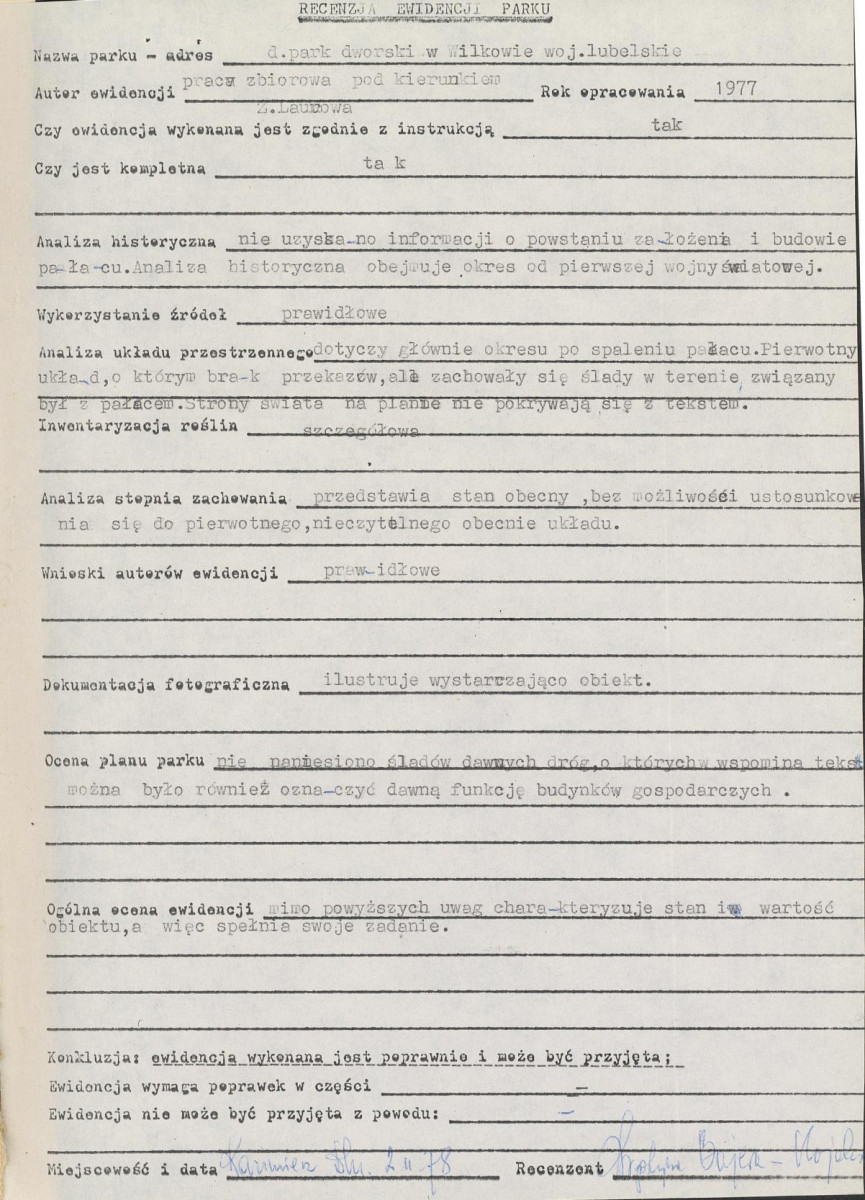 RECENZJA EWIDENCJI PARKU
Nazwa parku - adres d.park dworski w Wilkowie woj.lubelskie
Autor ewidencji praca zbiorowa pod kierunkiem Rok opracowania 1977
Z.Laurowa
Czy ewidencja wykonana jest zgodnie z instrukcją tak
Czy jest kompletna ta k
Analiza historyczna nie uzyska-no informacji o powstaniu za-łożenia i budowie
pa-ła-cu.Analiza historyczna obejmuje okres od pierwszej wojny światowej.
Wykorzystanie źródeł prawidłowe
Analiza układu przestrzennego dotyczy głównie okresu po spaleniu pałacu.Pierwotny
ukła-d,o którym bra-k przekazów,ale zachowały się ślady w terenie związany
był z pałacem.Strony świata na planie nie pokrywają się z tekstem.
Inwentaryzacja roślin szczegółowa
Analiza stopnia zachowania przedstawia stan obecny ,bez możliwości ustosunkowa
nia się do pierwotnego,nieczytelnego obecnie układu.
Wnioski autorów ewidencji praw-idłowe
Dokumentacja fotograficzna ilustruje wystarczająco obiekt.
Ocena planu parku nie naniesiono śladów dawnych dróg,o których wspomina tekst
można było również ozna-czyć dawną funkcję budynków gospodarczych .
Ogólna ocena ewidencji mimo powyższych uwag chara-kteryzuje stan i wartość
obiektu,a więc spełnia swoje zadanie.
Konkluzja: ewidencja wykonana jest poprawnie i może być przyjęta;
Ewidencja wymaga poprawek w części –
Ewidencja nie może być przyjęta z powodu: –
Miejscowość i data Kazimierz Dln. 2.II.78 Recenzent